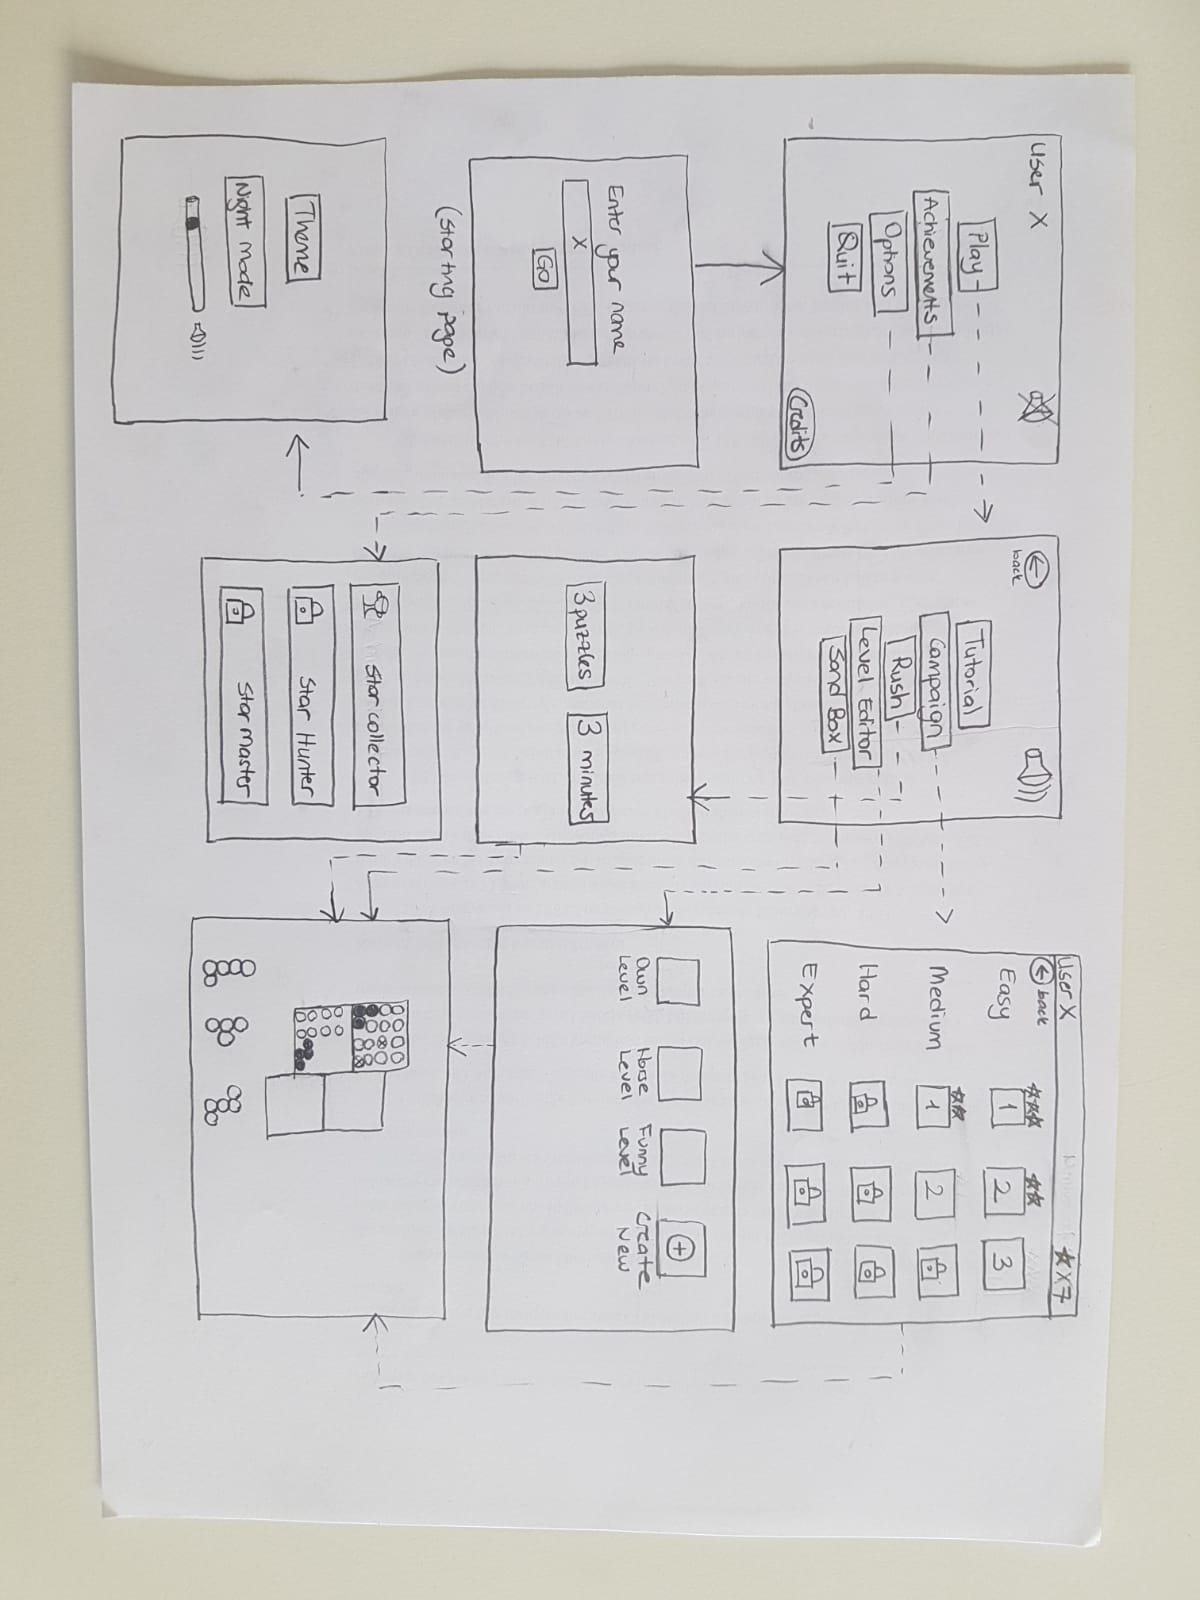 User X
Play
Achievements
Options
Quit
Credits
back
Tutorial
Campaign
Rush
Level Editor
Sand Box
User X
X7
back
Easy
1
2
3
Medium
1
2
Hard
Expert
Enter your name
X
Go
(starting page)
3 puzzles
3 minutes
Own
Level
Horse
Level
Funny
Level
Create
New
Theme
Night mode
Star collector
Star Hunter
Star master